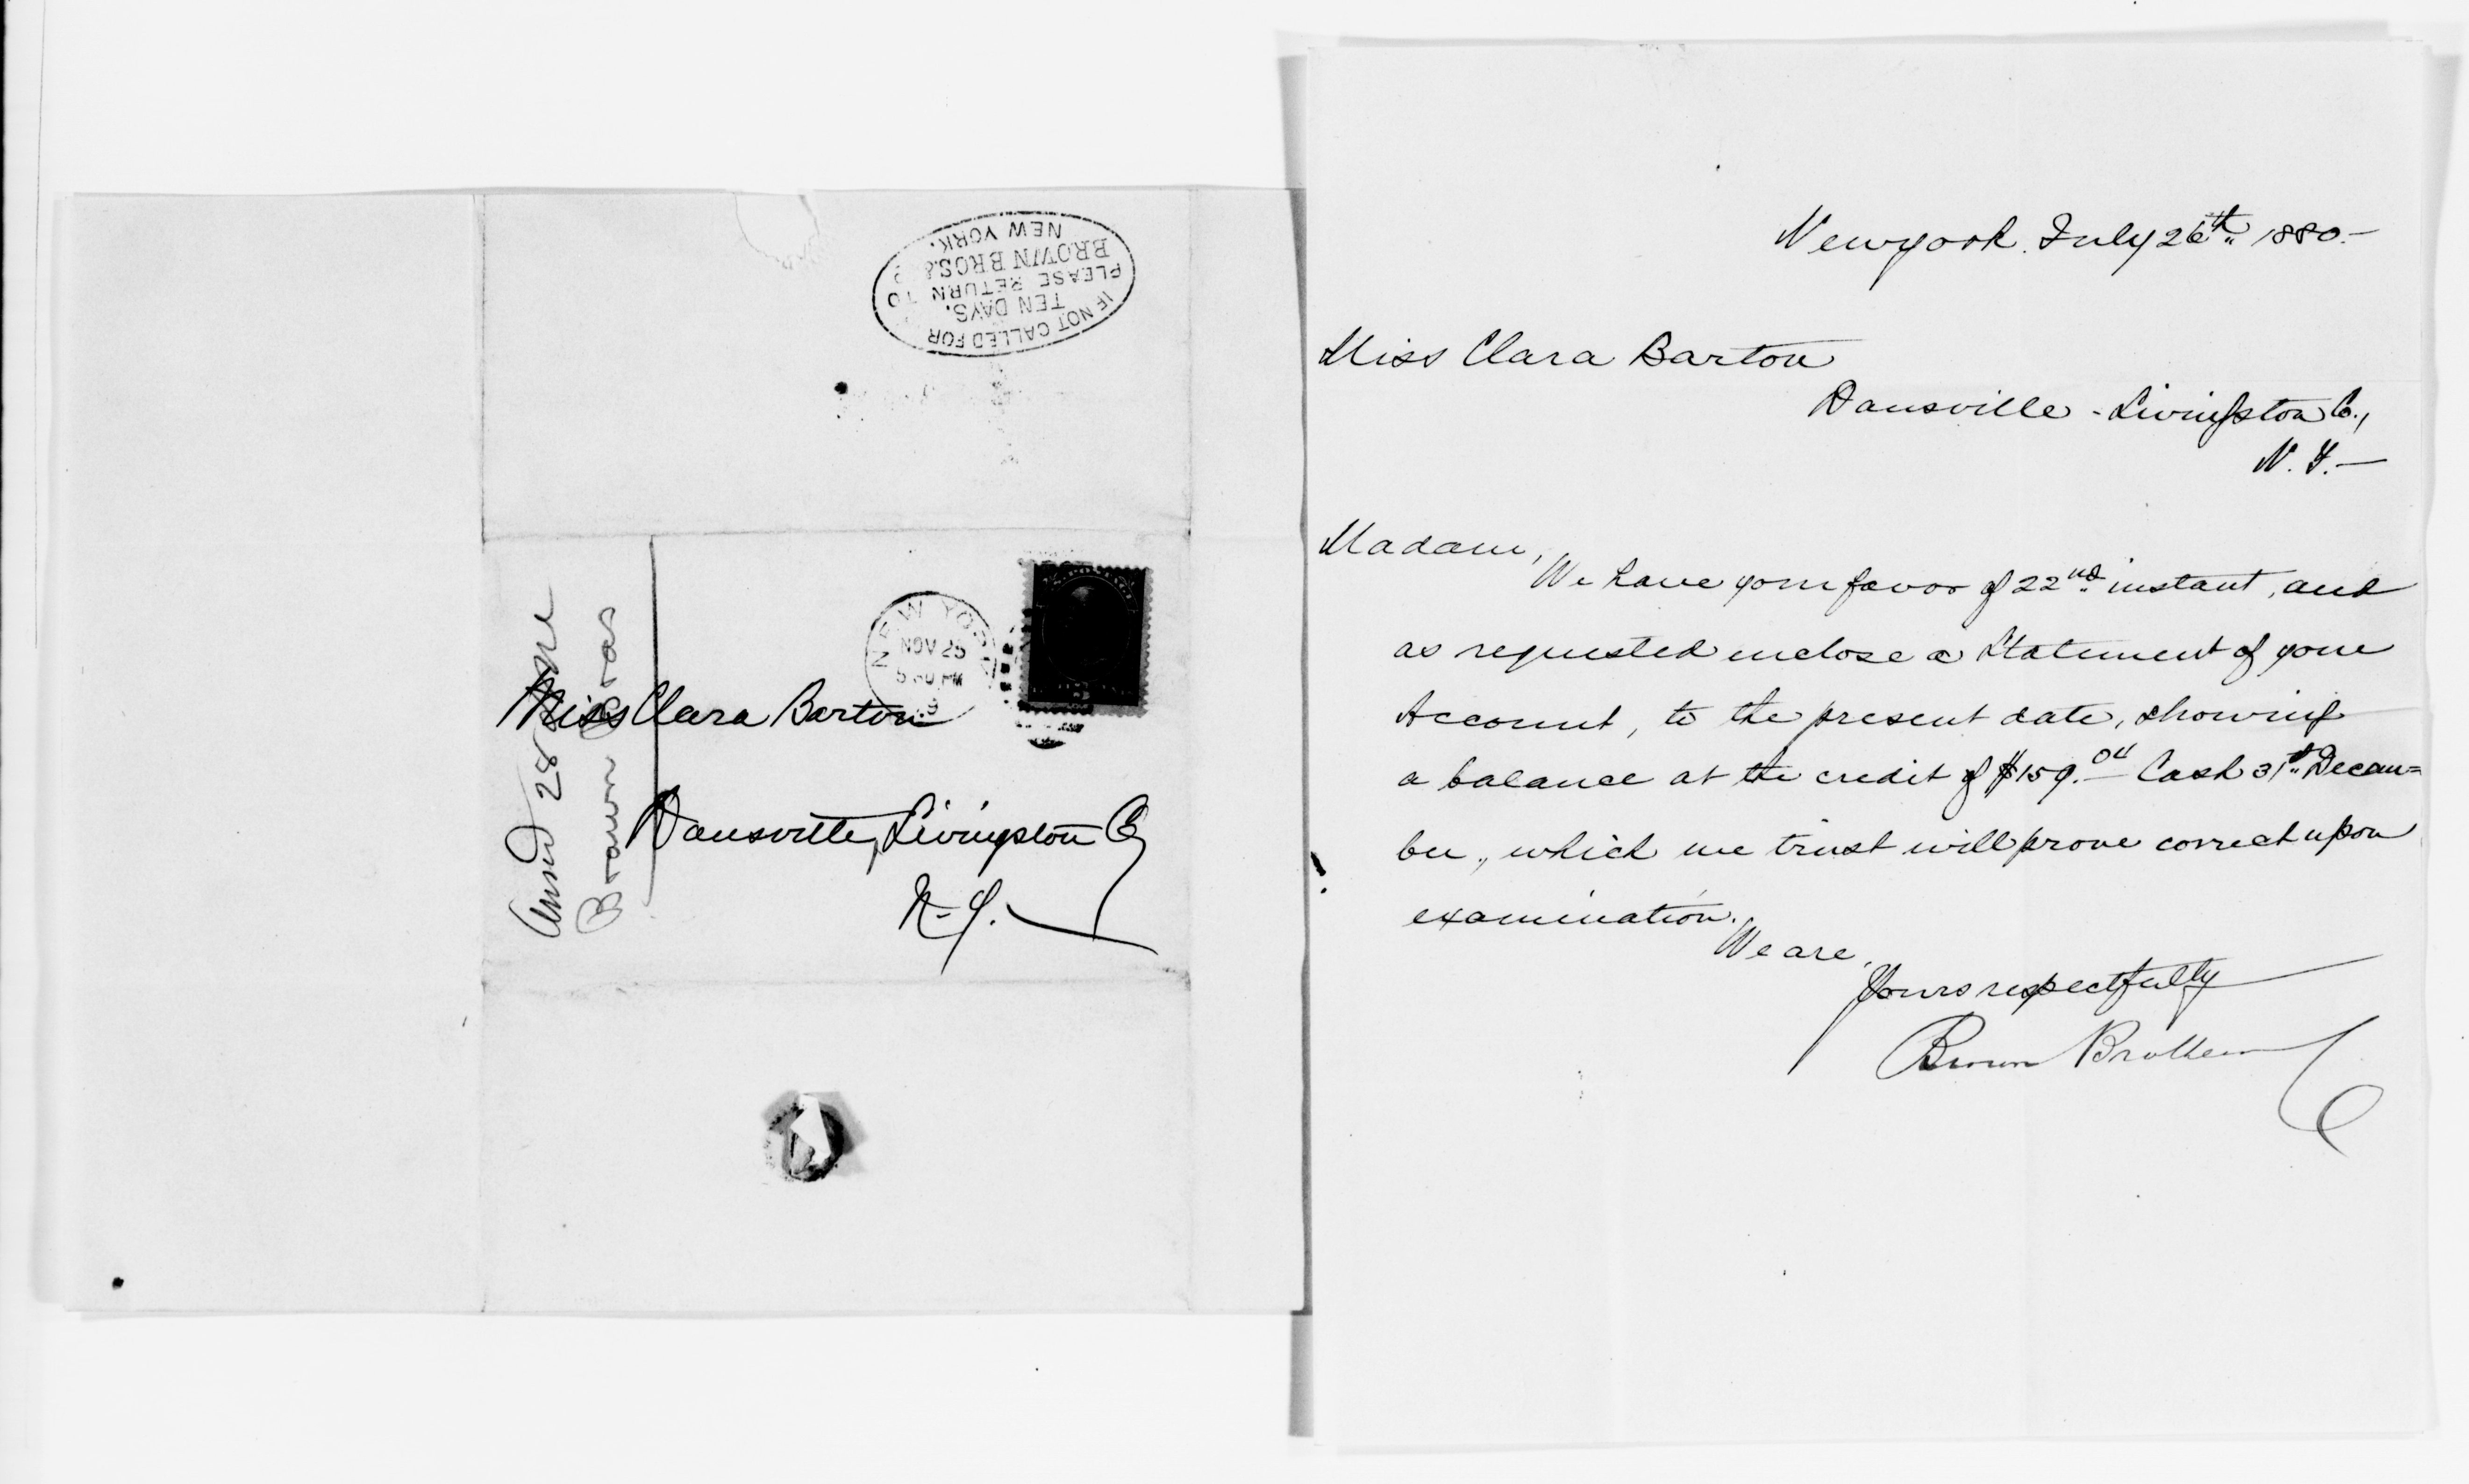 IF NOT CALLED FOR
TEN DAYS,
PLEASE RETURN TO
BROWN BROS. &
NEW YORK.
NEW YORK
NOV 25
Miss Clara Barton
Dansville, Livingston Co
N-Y.
Answd 28
Brown Bros
Newyork. July 26th 1880.-
Miss Clara Barton
Dansville - Livingston Co.,
N. Y.-
Madam,
We have your favor of 22nd instant, and
as requested enclose a Statement of your
Account, to the present date, showing
a balance at the credit of $159.04 Cash 31st Decem=
ber, which we trust will prove correct upon
examination.
We are,
Yours respectfully
Brown Brothers